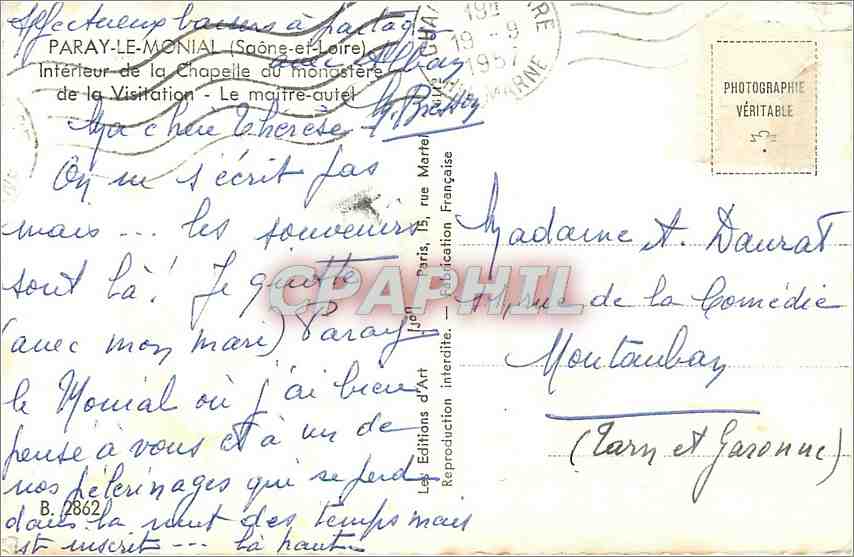 Affectueux baisers à partager
avec Alban
M. Bressy
PARAY-LE-MONIAL (Saône-et-Loire)
Intérieur de la Chapelle du monastère
de la Visitation - Le maître-autel
Ma chère Thérèse
On ne s'écrit pas
mais ... les souvenirs
sont là! Je quitte
(avec mon mari) Paray
le Monial où j'ai bien
pensé à vous et à un de
nos pélerinages qui se perd
dans la nuit des temps mais
est inscrit ... là haut.
B. 2862
Les Editions d'Art Paris, 15, rue Martel
Reproduction interdite. — Fabrication Française
19 - 9
1957
MARNE
PHOTOGRAPHIE
VÉRITABLE
Madame A. Daurat
rue de la Comédie
Montauban
(Tarn et Garonne)
CPAPHIL